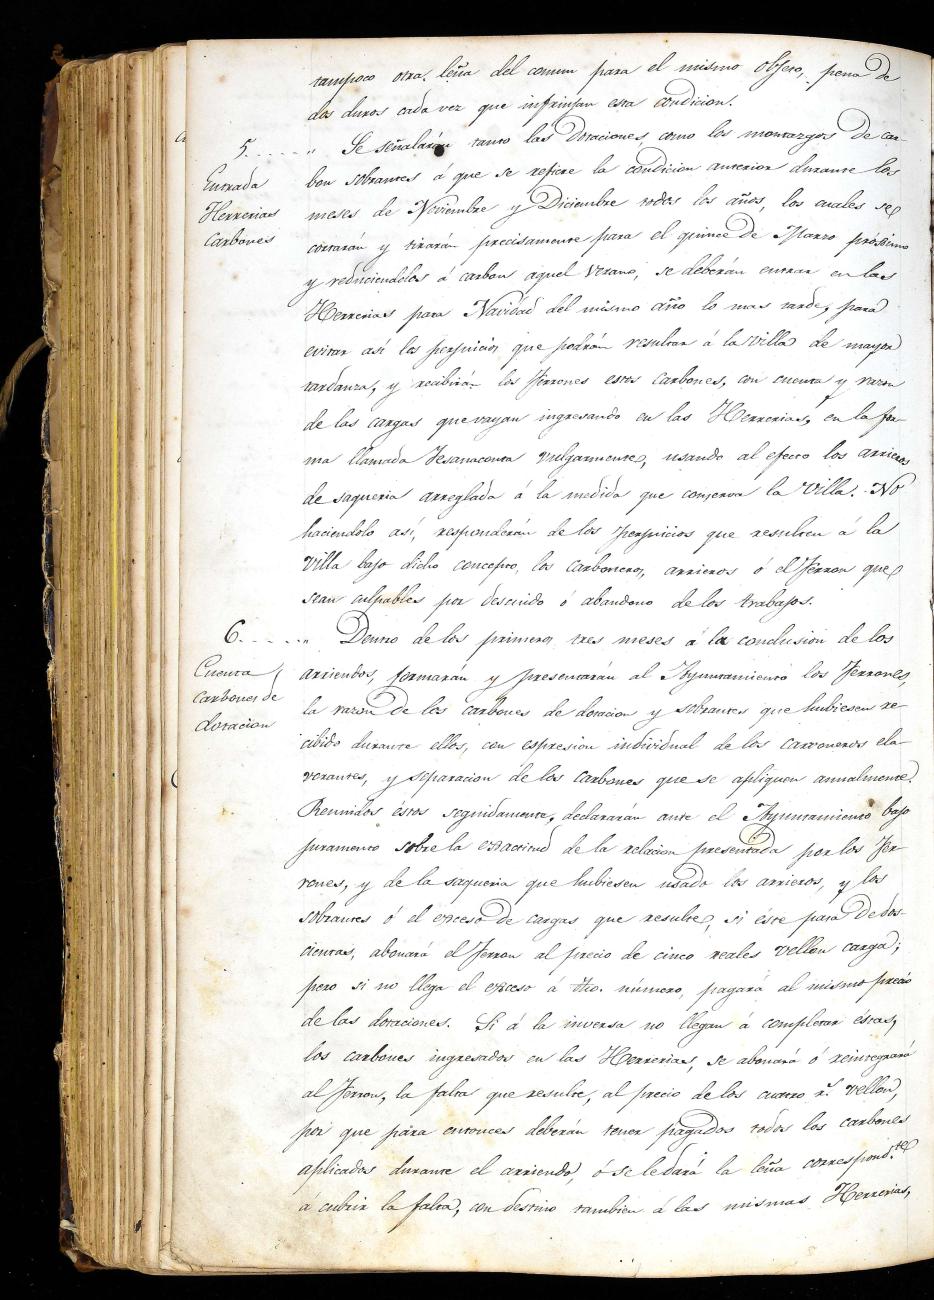 tampoco otra leña del comun para el mismo obgeto, pena de
dos duros cada vez que infrinjan esta condicion.
5. " Se señalarán tanto las Dotaciones, como los montazgos de car-
Entrada
Herrerias
Carbones
bon sobrantes á que se refiere la condicion anterior durante los
meses de Noviembre y Diciembre todos los años, los cuales se
cortarán y tirarán precisamente para el quince de Marzo prócsimo
y reduciendolos á carbon aquel verano, se deberán entrar en las
Herrerias para Navidad del mismo año lo mas tarde, para
evitar así los perjuicios, que podrán resultar á la Villa de mayor
tardanza, y recibirán los ferrones estos carbones, con cuenta y razon
de las cargas que vayan ingresando en las Herrerias, en la for-
ma llamada Tesanaconta vulgarmente, usando al efecto los arrieros
de saqueria arreglada á la medida que conserva la Villa. No
haciendolo así, responderán de los perjuicios que resulten á la
Villa bajo dicho concepto, los carboneros, arrieros ó el Ferron que
sean culpables por descuido ó abandono de los trabajos.
6. " Dentro de los primeros tres meses á la conclusion de los
Cuenta
carbones de
dotacion
arriendos, formarán y presentarán al Ayuntamiento los Ferrones,
la razon de los carbones de dotacion y sobrantes que hubiesen re-
cibido durante ellos, con espresion individual de los carvoneros ela-
verantes, y separacion de los carbones que se apliquen annalmente.
Reunidos éstos seguidamente, declararán ante el Ayuntamiento bajo
juramento sobre la exactitud de la relacion presentada por los Fer-
rones, y de la saqueria que hubiesen usado los arrieros, y los
sobrantes ó el exceso de cargas que resulte, si éste pasa de dos-
cientas, abonará el Ferron al precio de cinco reales vellon carga;
pero si no llega el exceso á dho. número, pagará al mismo precio
de las dotaciones. Si á la inversa no llegan á completar éstas,
los carbones ingresados en las Herrerias, se abonará ó reintegrará
al Ferron, la falta que resulte, al precio de los cuatro r.s vellon,
por que para entonces deberán tener pagados todos los carbones
aplicados durante el arriendo, ó se le dará la leña correspond.te
á cubrir la falta, con destino tambien á las mismas Herrerias,